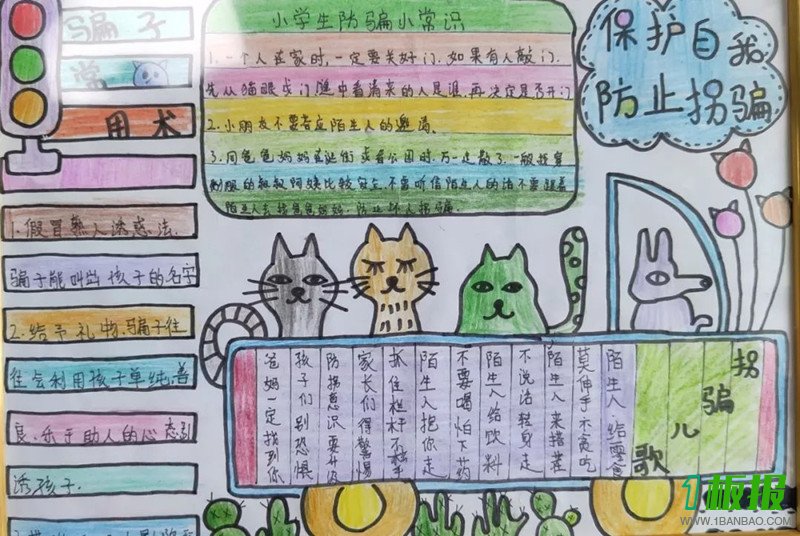 保护自我
防止拐骗
小学生防骗小常识
1.一个人在家时,一定要关好门.如果有人敲门.
先从猫眼或门缝中看清来的人是谁.再决定是否开门
2.小朋友不要答应陌生人的邀请.
3.同爸爸妈妈在逛街或者公园时,万一走散了.一般找穿
制服的叔叔阿姨比较安全.不要听信陌生人的话不要跟着
陌生人去找爸爸妈妈.防止坏人拐骗
骗子
常
用术
1.假冒熟人诱惑法.
骗子能叫出孩子的名字
2.给予礼物.骗子往
往会利用孩子单纯.善
良.乐于助人的心态引
诱孩子.
拐骗儿歌
陌生人给零食
莫伸手不贪吃
陌生人来搭茬
不说话转身走
陌生人给饮料
不要喝怕下药
陌生人抱你走
抓住栏杆不松手
家长们得警惕
防拐意识要升级
孩子们别恐惧
爸妈一定找到你
1板报
WWW.1BANBAO.COM